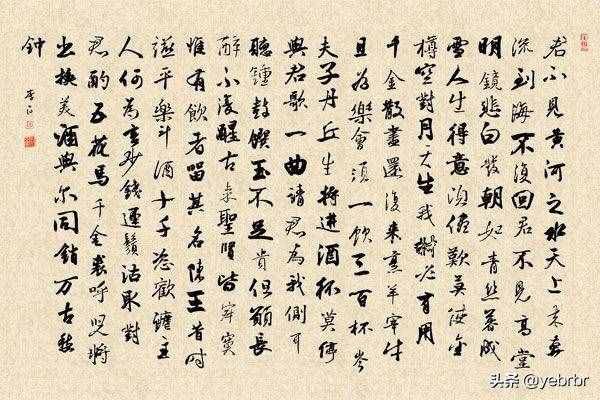 君不見黄河之水天上来奔
流到海不復回君不見高堂
明鏡悲白發朝如青丝暮成
雪人生得意須儘歡莫使金
樽空對月天生我材必有用
千金散盡還復来烹羊宰牛
且為樂會須一飲三百杯岑
夫子丹丘生将進酒杯莫停
與君歌一曲請君為我側耳
聽鐘鼓饌玉不足貴但願長
醉不復醒古来聖賢皆寂寞
惟有飲者留其名陳王昔时
宴平樂斗酒十千恣歡謔主
人何為言少錢逕須沽取對
君酌五花馬千金裘呼兒将
出换美酒與尔同銷万古愁
钟
头条 @yebrbr